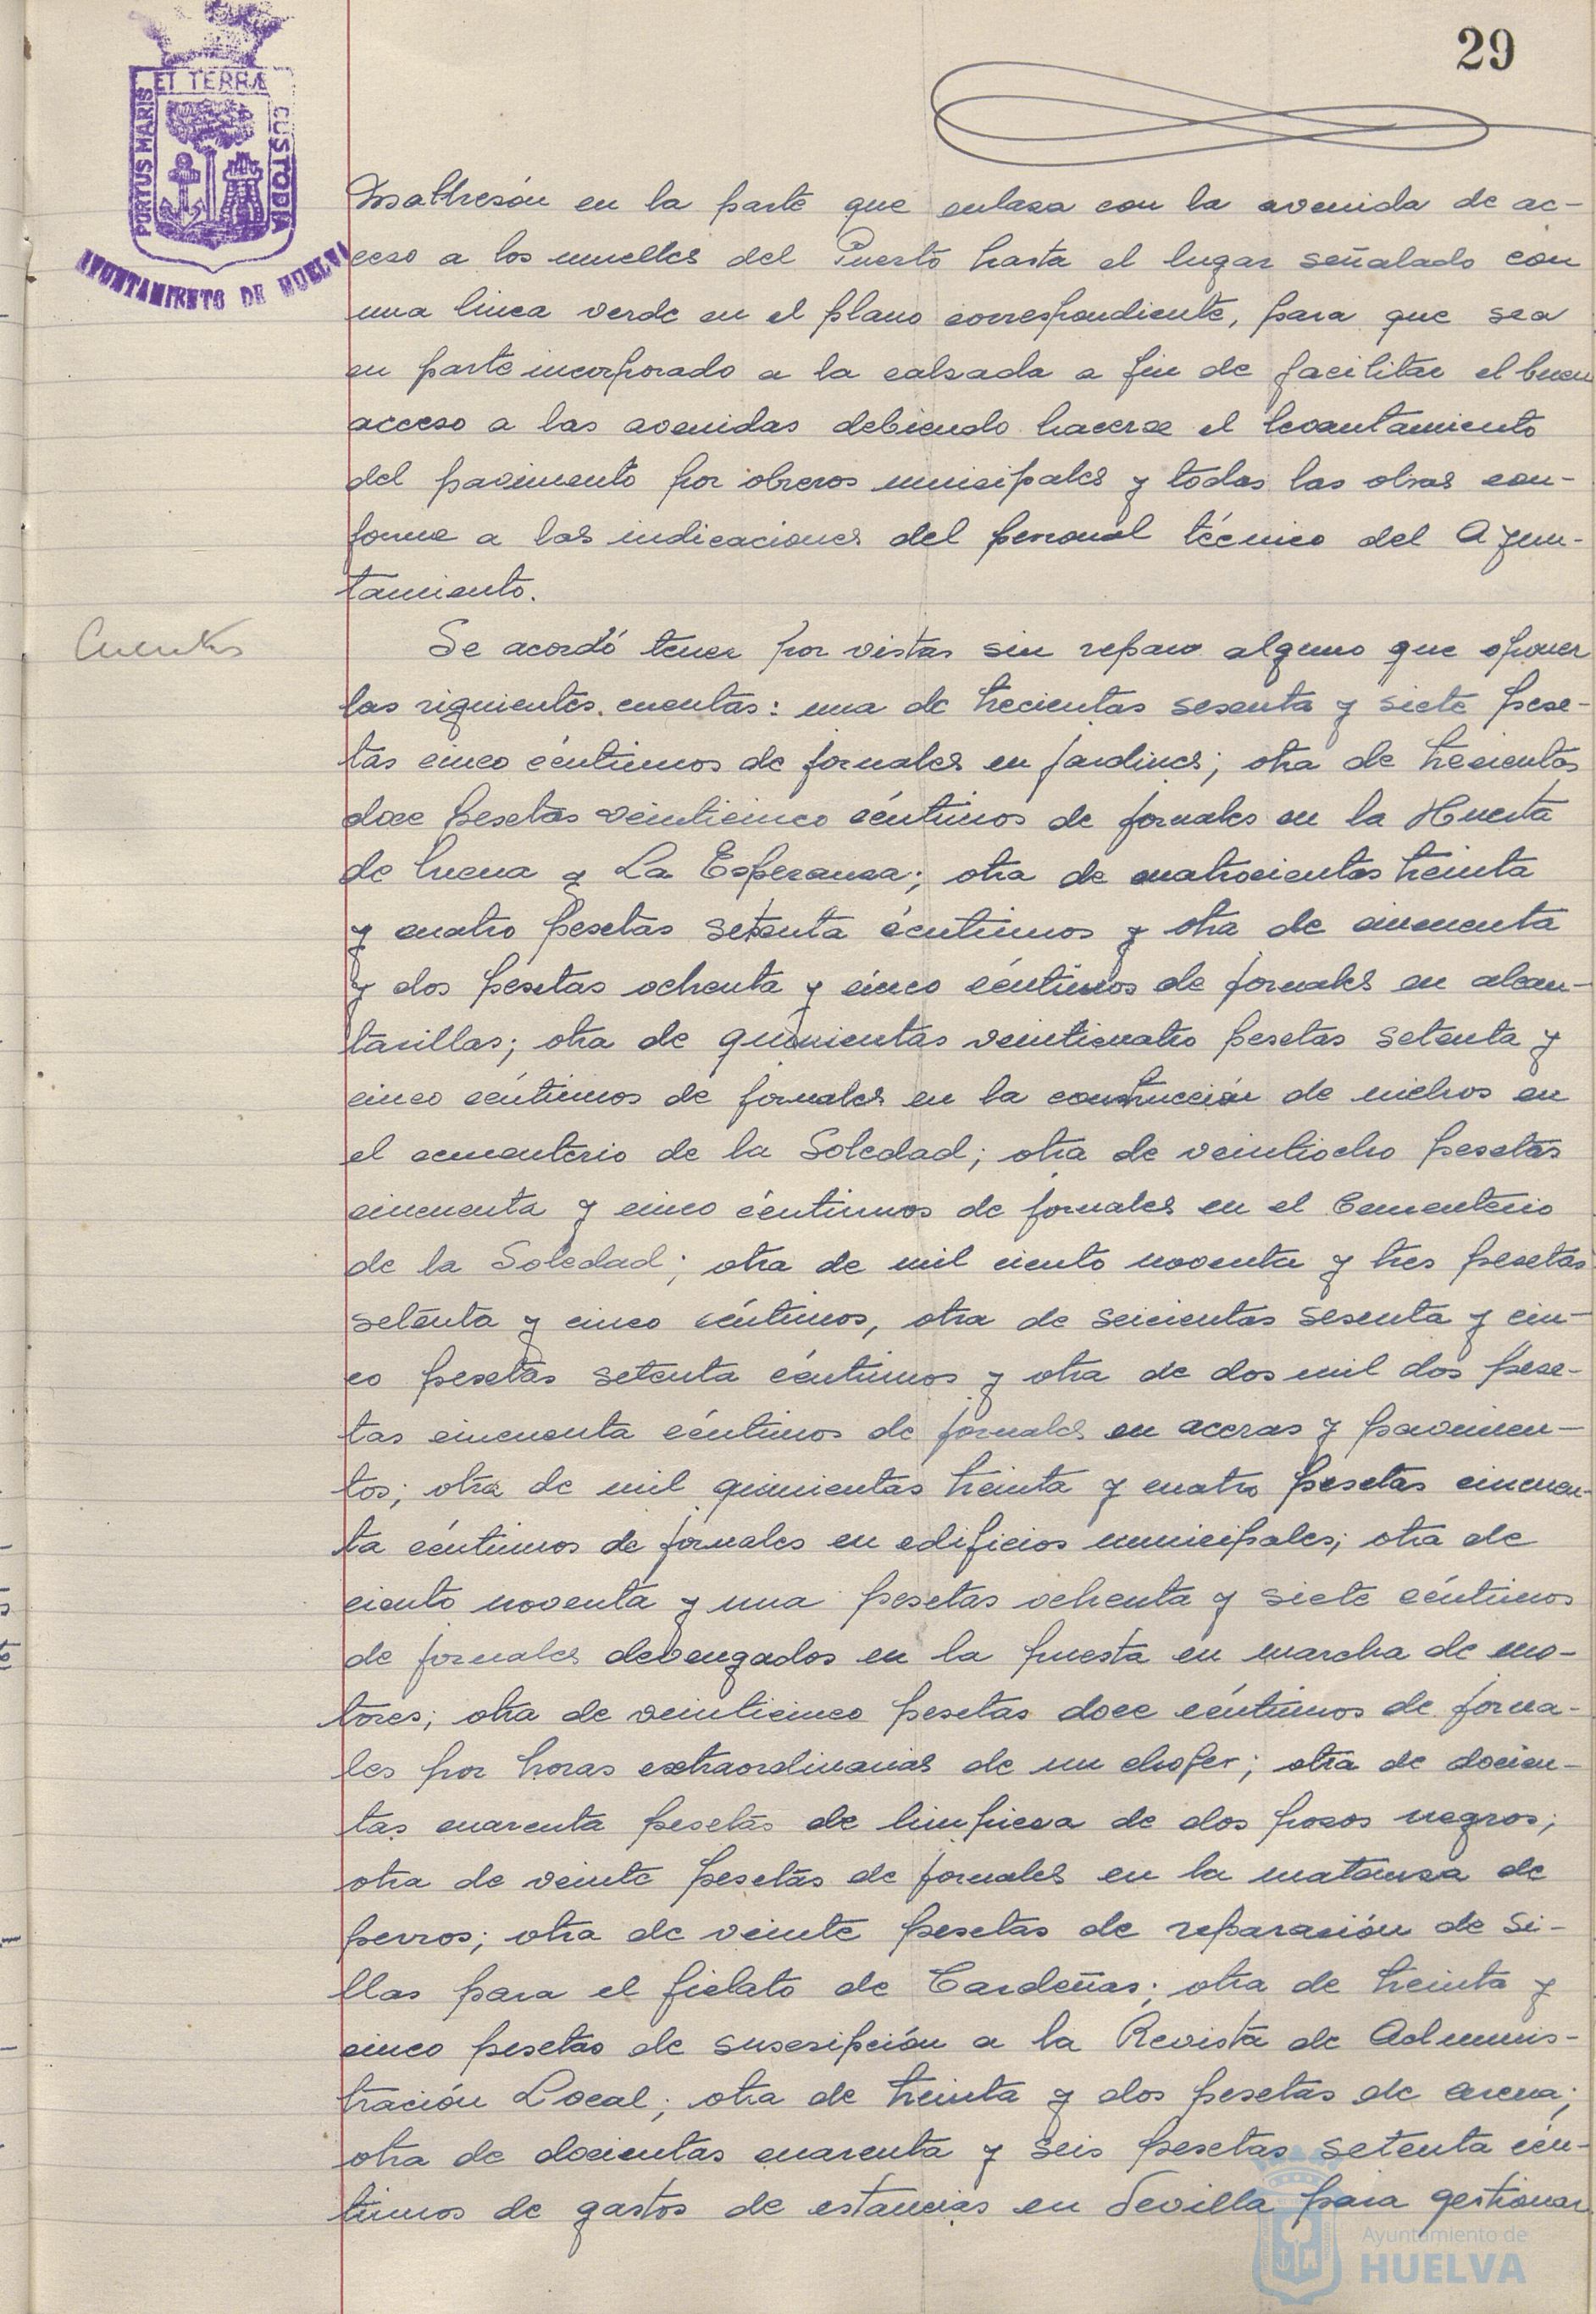 29
PORTUS MARIS ET TERRÆ CUSTODIA
AYUNTAMIENTO DE HUELVA
en la parte que enlaza con la avenida de ac-
ceso a los muelles del Puerto hasta el lugar señalado con
una linea verde en el plano correspondiente, para que sea
en parte incorporado a la calzada a fin de facilitar el buen
acceso a las avenidas debiendo hacerse el levantamiento
del pavimento por obreros municipales y todas las obras con-
forme a las indicaciones del personal técnico del Ayun-
tamiento.
Cuentas
Se acordó tener por vistas sin reparo alguno que oponer
las siguientes cuentas: una de trecientas sesenta y siete pese-
tas cinco céntimos de jornales en jardines; otra de trecientas
doce pesetas veinticinco céntimos de jornales en la Huerta
de Mena y La Esperanza; otra de cuatrocientas treinta
y cuatro pesetas setenta céntimos y otra de cincuenta
y dos pesetas ochenta y cinco céntimos de jornales en alcan-
tarillas; otra de quinientas veinticuatro pesetas setenta y
cinco céntimos de jornales en la construcción de nichos en
el cementerio de la Soledad; otra de veintiocho pesetas
cincuenta y cinco céntimos de jornales en el Cementerio
de la Soledad; otra de mil ciento noventa y tres pesetas
setenta y cinco céntimos, otra de seicientas sesenta y cin-
co pesetas setenta céntimos y otra de dos mil dos pese-
tas cincuenta céntimos de jornales en aceras y pavimen-
tos; otra de mil quinientas treinta y cuatro pesetas cincuen-
ta céntimos de jornales en edificios municipales; otra de
ciento noventa y una pesetas ochenta y siete céntimos
de jornales devengados en la puesta en marcha de mo-
tores; otra de veinticinco pesetas doce céntimos de jorna-
les por horas extraordinarias de un chofer; otra de docien-
tas cuarenta pesetas de limpieza de dos pozos negros;
otra de veinte pesetas de jornales en la matanza de
perros; otra de veinte pesetas de reparación de si-
llas para el fielato de Cardeñas; otra de treinta y
cinco pesetas de suscripción a la Revista de Adminis-
tración Local; otra de treinta y dos pesetas de arena;
otra de docientas cuarenta y seis pesetas setenta cén-
timos de gastos de estancias en Sevilla para gestionar
Ayuntamiento de
HUELVA